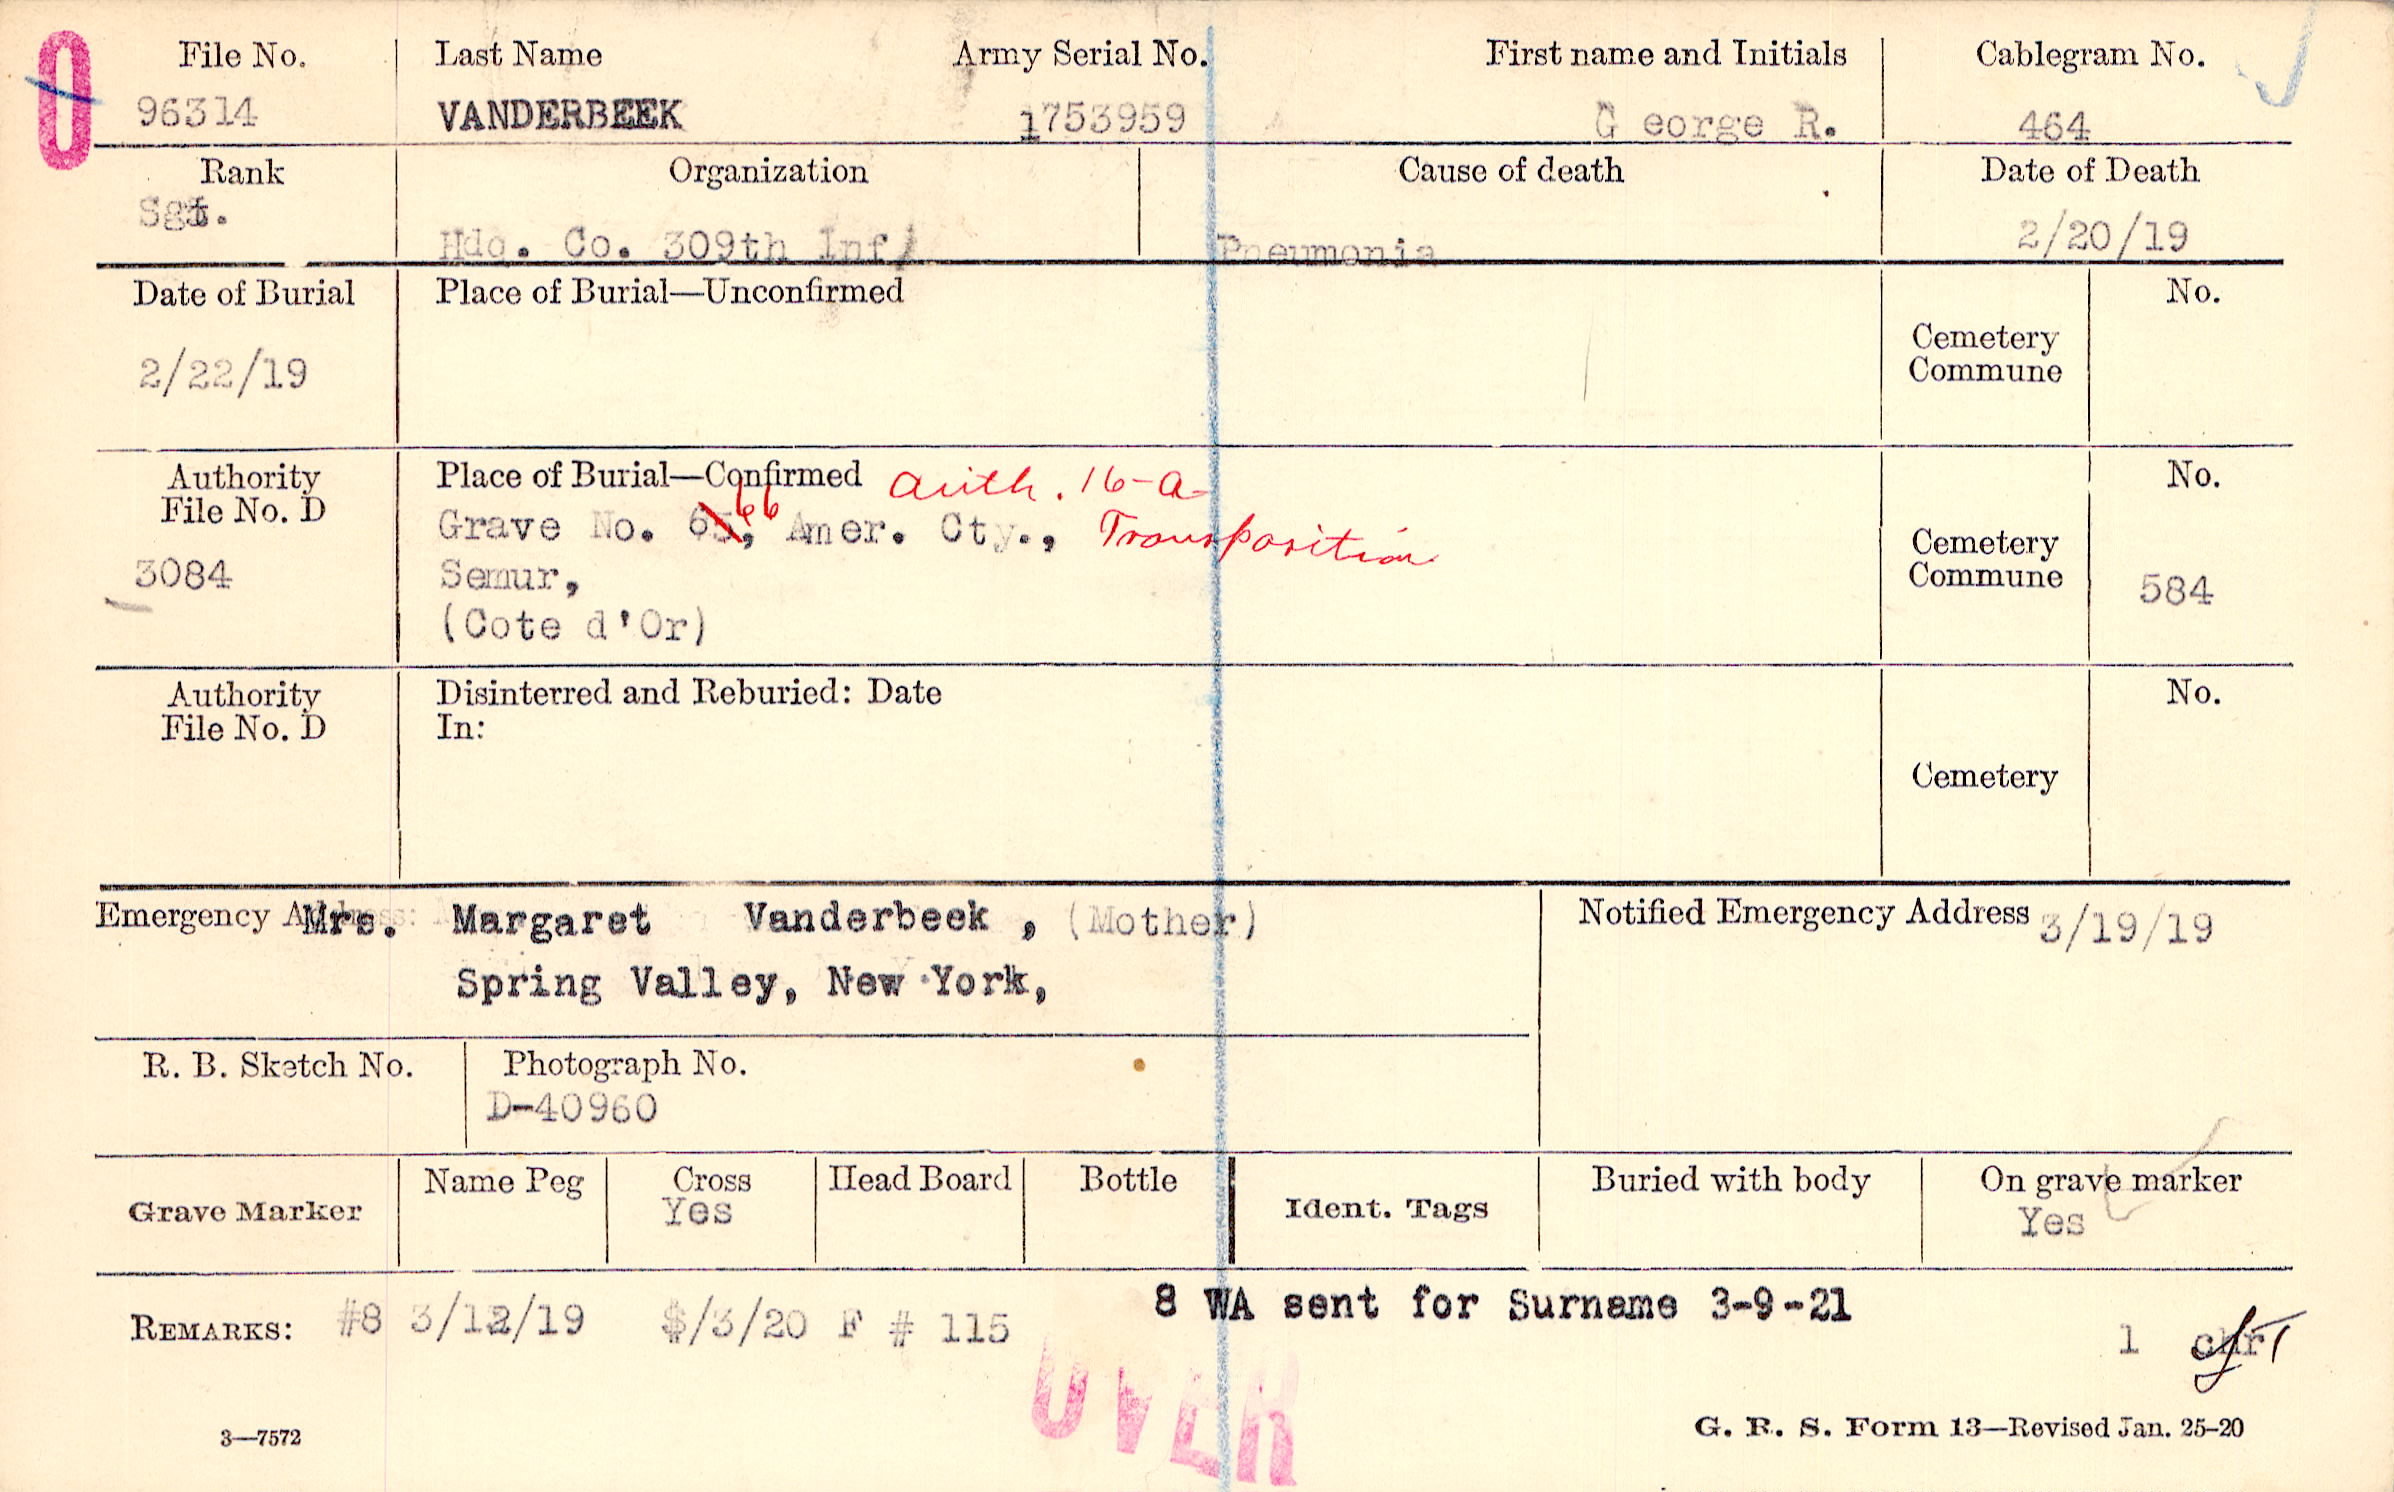 0
File No. Last Name Army Serial No. First name and Initials Cablegram No.
96314 VANDERBEEK 1753959 G eorge R. 464
Rank Organization Cause of death Date of Death
Sgt. Hdq. Co. 309th Inf/ Pneumonia 2/20/19
Date of Burial Place of Burial—Unconfirmed No.
Cemetery
Commune
2/22/19
Authority
File No. D
3084
Place of Burial—Confirmed auth. 16-a
Grave No. 65, 66 Amer. Cty., Transposition
Semur,
(Cote d'Or)
No.
Cemetery
Commune 584
Authority
File No. D
Disinterred and Reburied: Date
In:
No.
Cemetery
Emergency Address: Mrs. Margaret Vanderbeek , (Mother)
Spring Valley, New York,
Notified Emergency Address 3/19/19
R. B. Sketch No. Photograph No.
D-40960
Grave Marker Name Peg Cross Head Board Bottle Ident. Tags Buried with body On grave marker
Yes Yes
8 WA sent for Surname 3-9-21
REMARKS: #8 3/12/19 $/3/20 F # 115
1
OVER
3—7572 G. R. S. Form 13—Revised Jan. 25-20